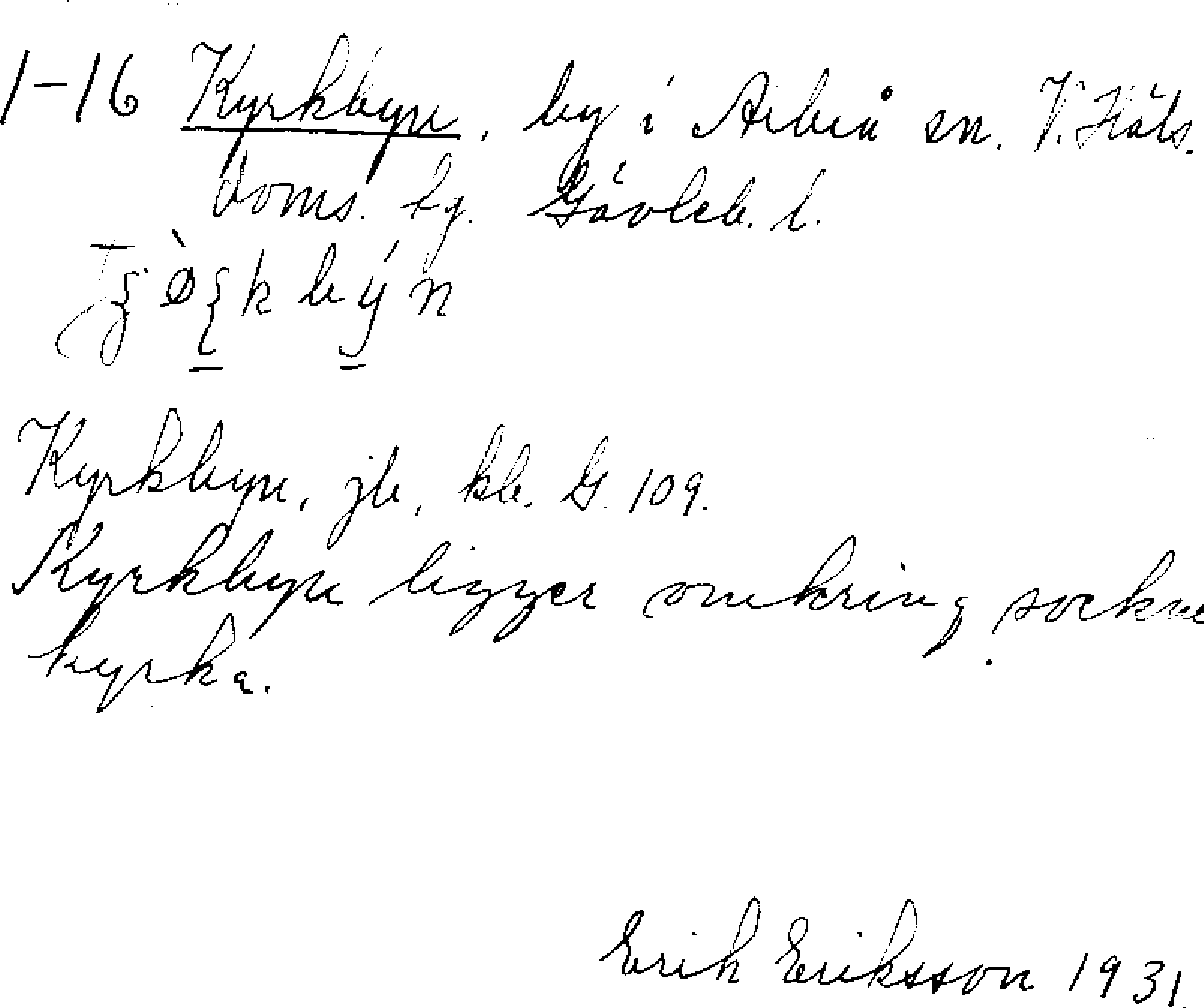 1-16 Kyrkbyn, by i Arbrå sn. V. Häls.
doms. tg. Gävleb. l.
Kyrkbyn, jb, kb. G. 109.
Kyrkbyn ligger omkring sockne
kyrka.
Erik Eriksson 1931